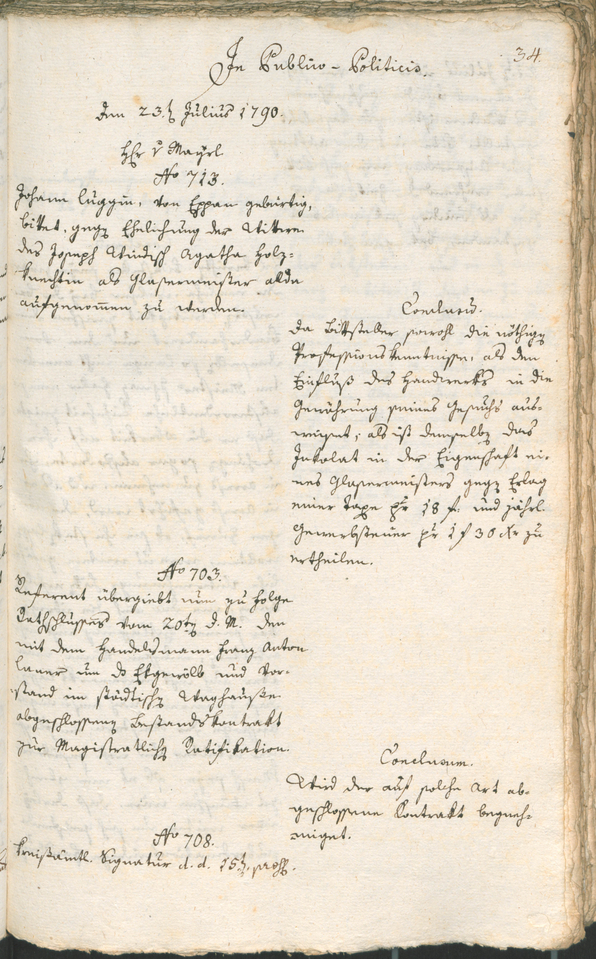 34.
In Publico-Politicis.
Den 23t Julius 1790.
Hr v Mayrl
No 713.
Johann Luggin, von Eppan gebürtig,
bittet, gegen Ehelichung der Wittwe
des Joseph Windisch Agatha Holz-
knechtin als Glasermeister alda
aufgenommen zu werden.
Conclusum.
Da Bittsteller sowohl die nöthigen
Professionskenntnisse, als den
Einfluß des Handwerks in die
Gewährung seines Gesuchs aus-
weiset; als ist demselben das
Inkolat in der Eigenschaft ei-
nes Glasermeisters gegen Erlag
einer Taxe pr 18 f. und jährl.
Gewerbsteuer pr 1 f 30 xr zu
ertheilen.
No 703.
Referent übergiebt nun zu Folge
Rathschlusses vom 20ten d. M. den
mit dem Handelsmann Franz Anton
um Ekgewölb und Vor-
stand im städtischen Waghause
abgeschlossenen Bestandskontrakt
zur Magistratlichen Ratifikation.
Conclusum.
Wird der auf solche Art ab-
geschlossene Kontrakt begneh-
miget.
No 708.
Kreisämtl. Signatur d. d. 15t